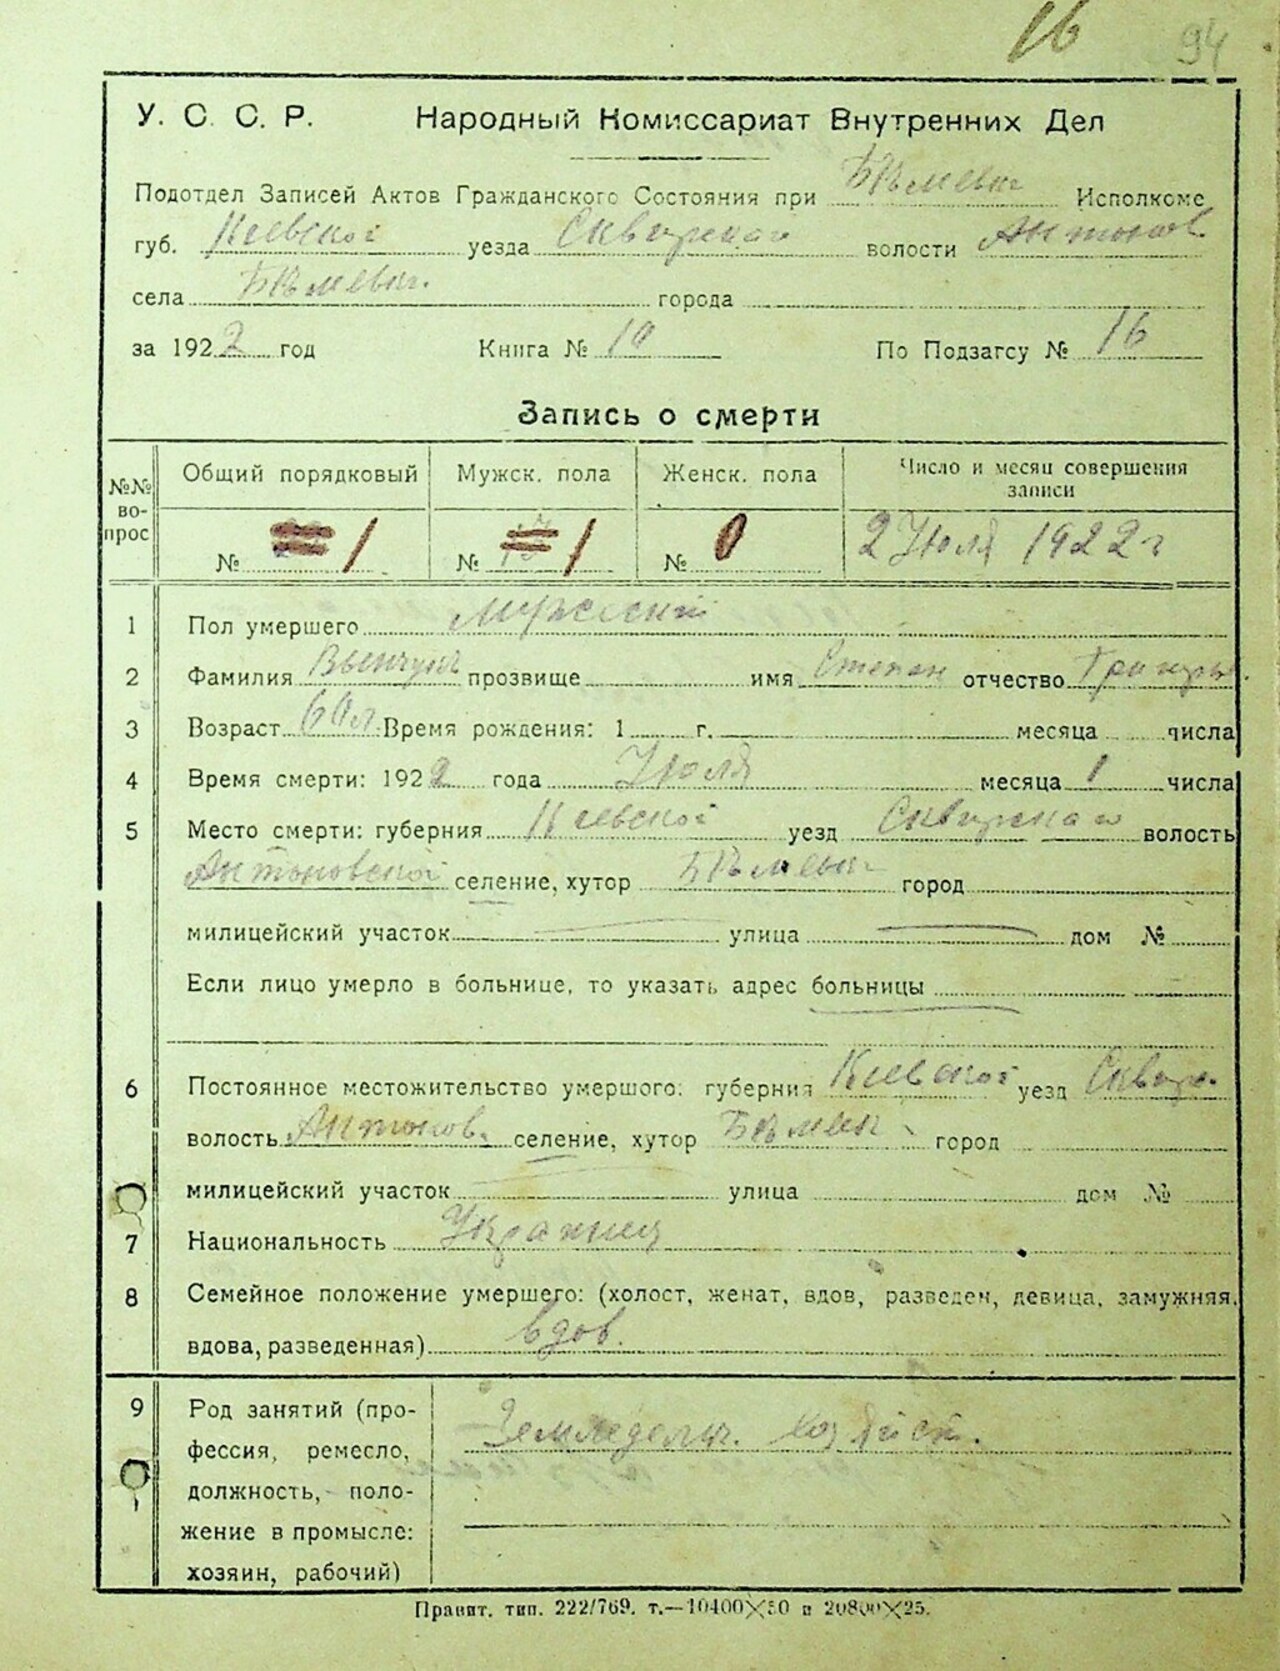 16 94
У. С. С. Р. Народный Комиссариат Внутренних Дел
Подотдел Записей Актов Гражданского Состояния при Исполкоме
губ. Киевской уезда Сквирского волости Антонов.
села города
за 1922 год Книга № 10 По Подзагсу № 16
Запись о смерти
№№ вопрос Общий порядковый Мужск. пола Женск. пола Число и месяц совершения записи
№ 1 № 1 № 0 2 Июля 1922 г
1 Пол умершего мужеский
2 Фамилия прозвище имя Степан отчество Григорьев.
3 Возраст 60 л. Время рождения: 1 г. месяца числа
4 Время смерти: 1922 года Июля месяца 1 числа
5 Место смерти: губерния Киевской уезд Сквирского волость
Антоновской селение, хутор город
милицейский участок улица дом №
Если лицо умерло в больнице, то указать адрес больницы
6 Постоянное местожительство умершого: губерния Киевской уезд Сквир.
волость Антонов. селение, хутор город
милицейский участок улица дом №
7 Национальность Украинец
8 Семейное положение умершего: (холост, женат, вдов, разведен, девица, замужняя,
вдова, разведенная) вдов.
9 Род занятий (про-
фессия, ремесло,
должность, поло-
жение в промысле:
хозяин, рабочий)
Земледельч. хозяйст.
Правит. тип. 222/769. т.—10400×50 и 20800×25.